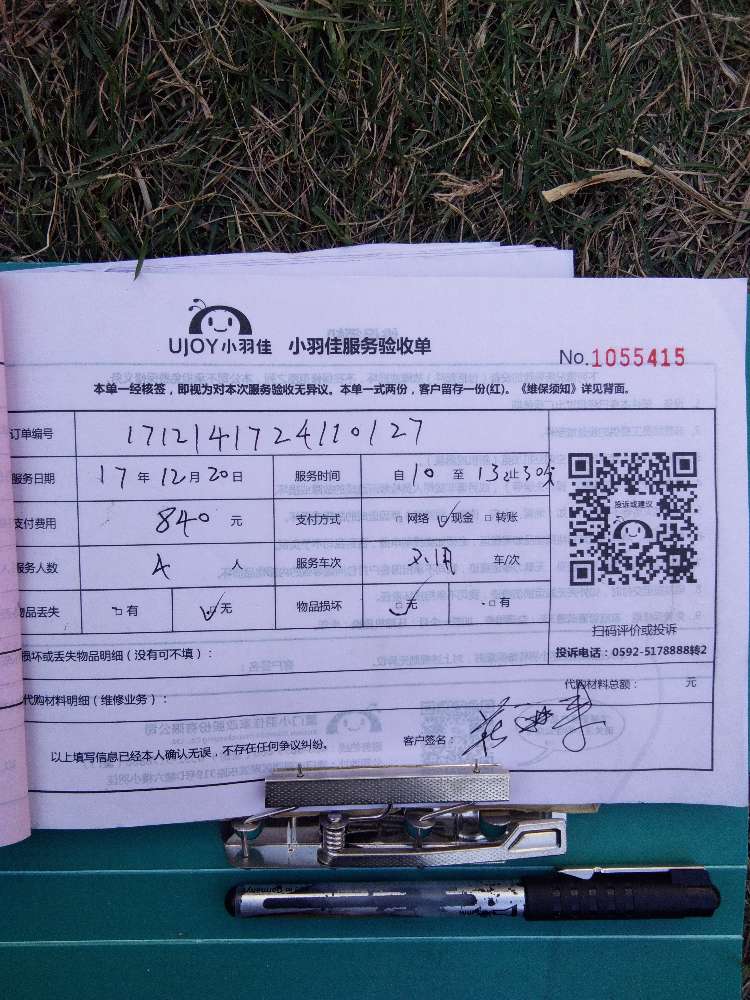 UJOY小羽佳 小羽佳服务验收单
No.1055415
本单一经核签，即视为对本次服务验收无异议。本单一式两份，客户留存一份(红)。《维保须知》详见背面。
订单编号 1712141724110127
服务日期 17年12月20日 服务时间 自10至13止30分
支付费用 840元 支付方式 □网络 ☑现金 □转账
服务人数 4人 服务车次 车/次
物品丢失 □有 ☑无 物品损坏 ☑无 □有
投诉或建议
扫码评价或投诉
投诉电话：0592-5178888转2
损坏或丢失物品明细（没有可不填）：
代购材料明细（维修业务）：
代购材料总额： 元
以上填写信息已经本人确认无误，不存在任何争议纠纷。
客户签名：